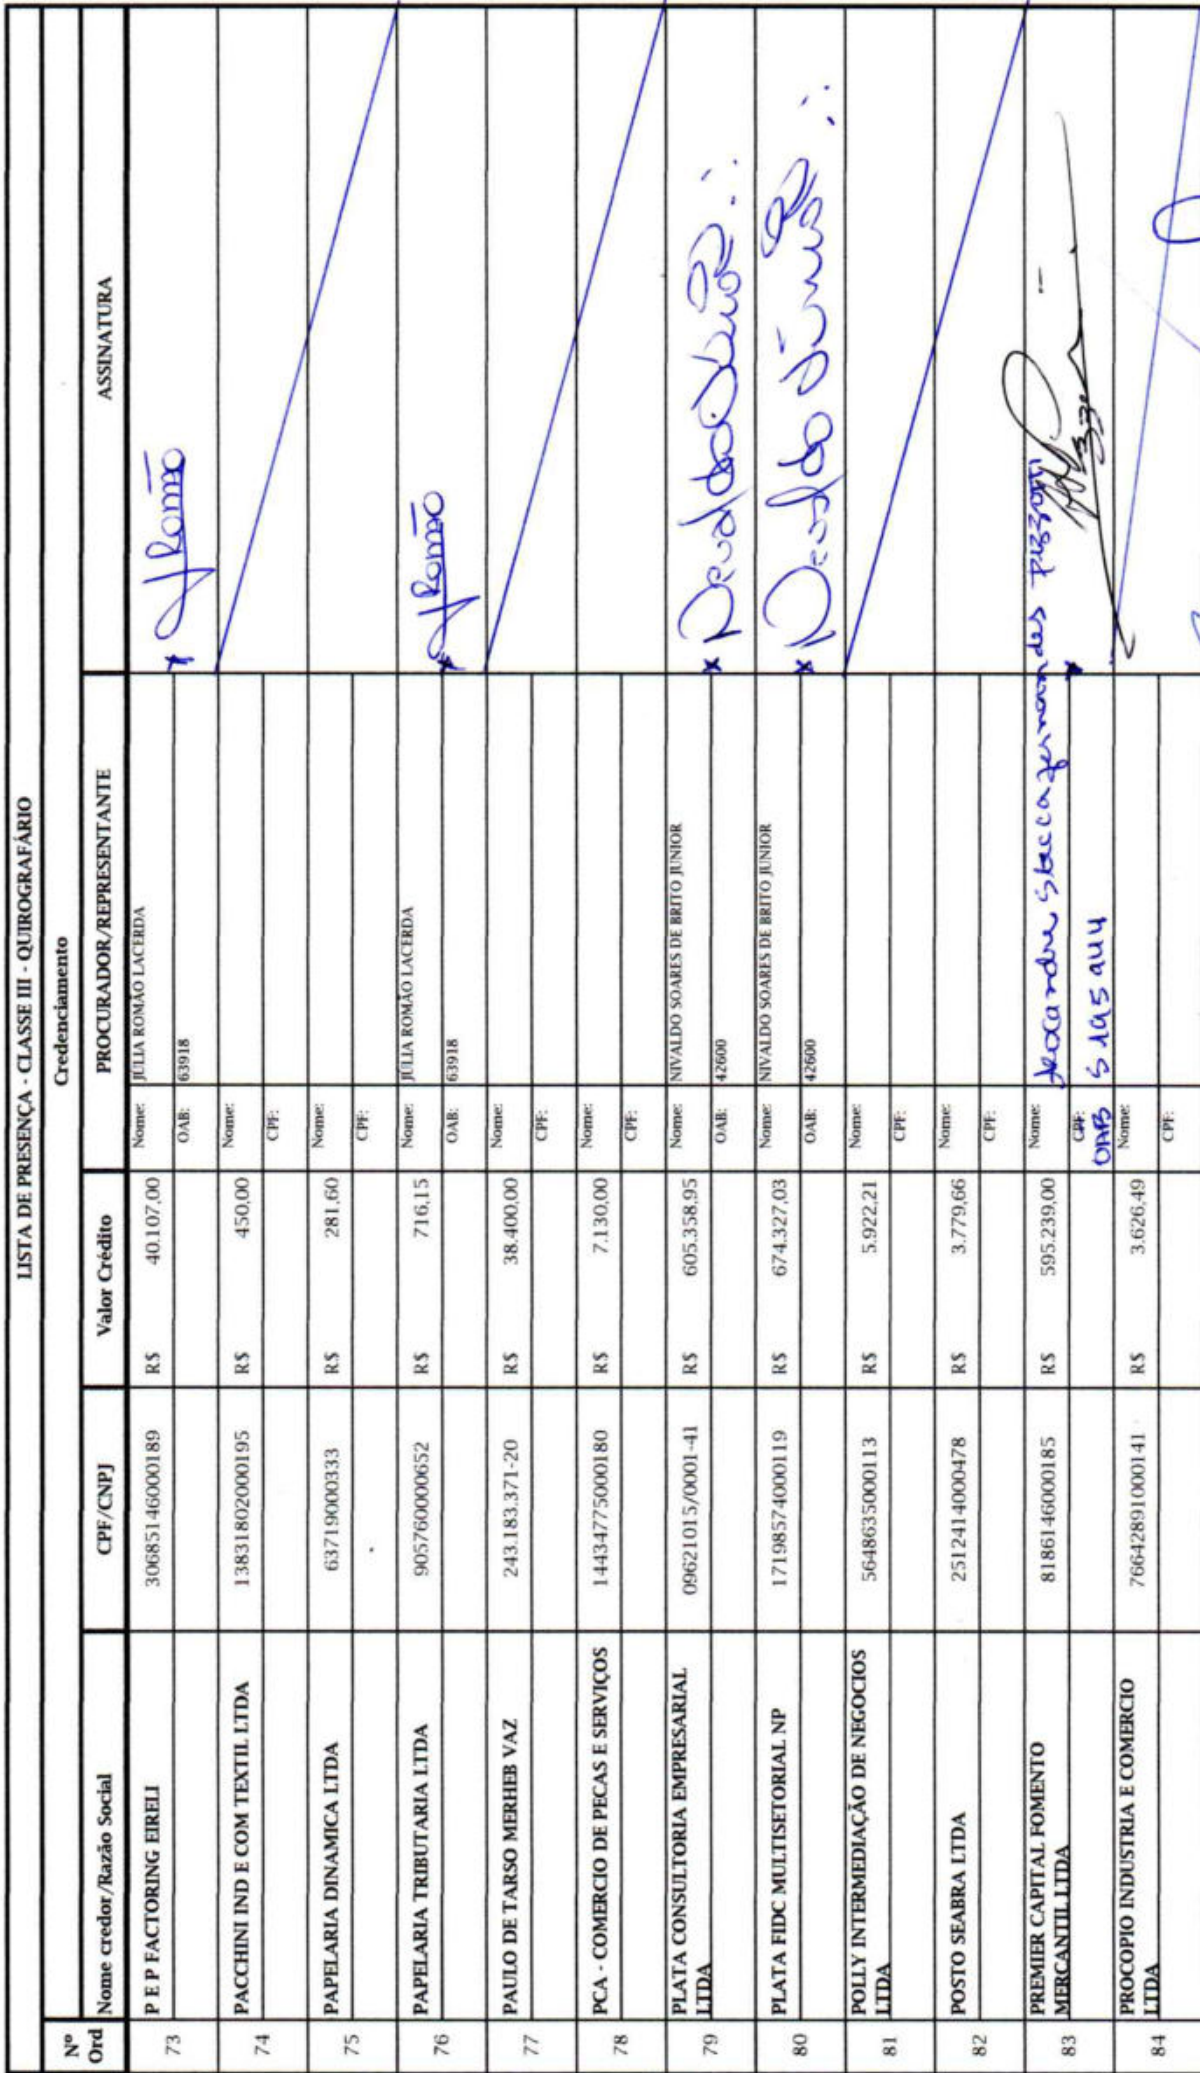 LISTA DE PRESENÇA - CLASSE III - QUIROGRAFÁRIO
Credenciamento
Nº Ord Nome credor/Razão Social CPF/CNPJ Valor Crédito PROCURADOR/REPRESENTANTE ASSINATURA
73 P E P FACTORING EIRELI 30685146000189 R$ 40.107,00 Nome: JÚLIA ROMÃO LACERDA
OAB: 63918
J Romão
74 PACCHINI IND E COM TEXTIL LTDA 13831802000195 R$ 450,00 Nome:
CPF:
75 PAPELARIA DINAMICA LTDA 63719000333 R$ 281,60 Nome:
CPF:
76 PAPELARIA TRIBUTARIA LTDA 905760000652 R$ 716,15 Nome: JÚLIA ROMÃO LACERDA
OAB: 63918
J Romão
77 PAULO DE TARSO MERHEB VAZ 243.183.371-20 R$ 38.400,00 Nome:
CPF:
78 PCA - COMERCIO DE PECAS E SERVIÇOS 14434775000180 R$ 7.130,00 Nome:
CPF:
79 PLATA CONSULTORIA EMPRESARIAL LTDA 09621015/0001-41 R$ 605.358,95 Nome: NIVALDO SOARES DE BRITO JUNIOR
OAB: 42600
80 PLATA FIDC MULTISETORIAL NP 17198574000119 R$ 674.327,03 Nome: NIVALDO SOARES DE BRITO JUNIOR
OAB: 42600
81 POLLY INTERMEDIAÇÃO DE NEGOCIOS LTDA 5648635000113 R$ 5.922,21 Nome:
CPF:
82 POSTO SEABRA LTDA 2512414000478 R$ 3.779,66 Nome:
CPF:
83 PREMIER CAPITAL FOMENTO MERCANTIL LTDA 8186146000185 R$ 595.239,00 Nome: fernandes Pizzotti
CPF:
OAB
84 PROCOPIO INDUSTRIA E COMERCIO LTDA 76642891000141 R$ 3.626,49 Nome:
CPF: